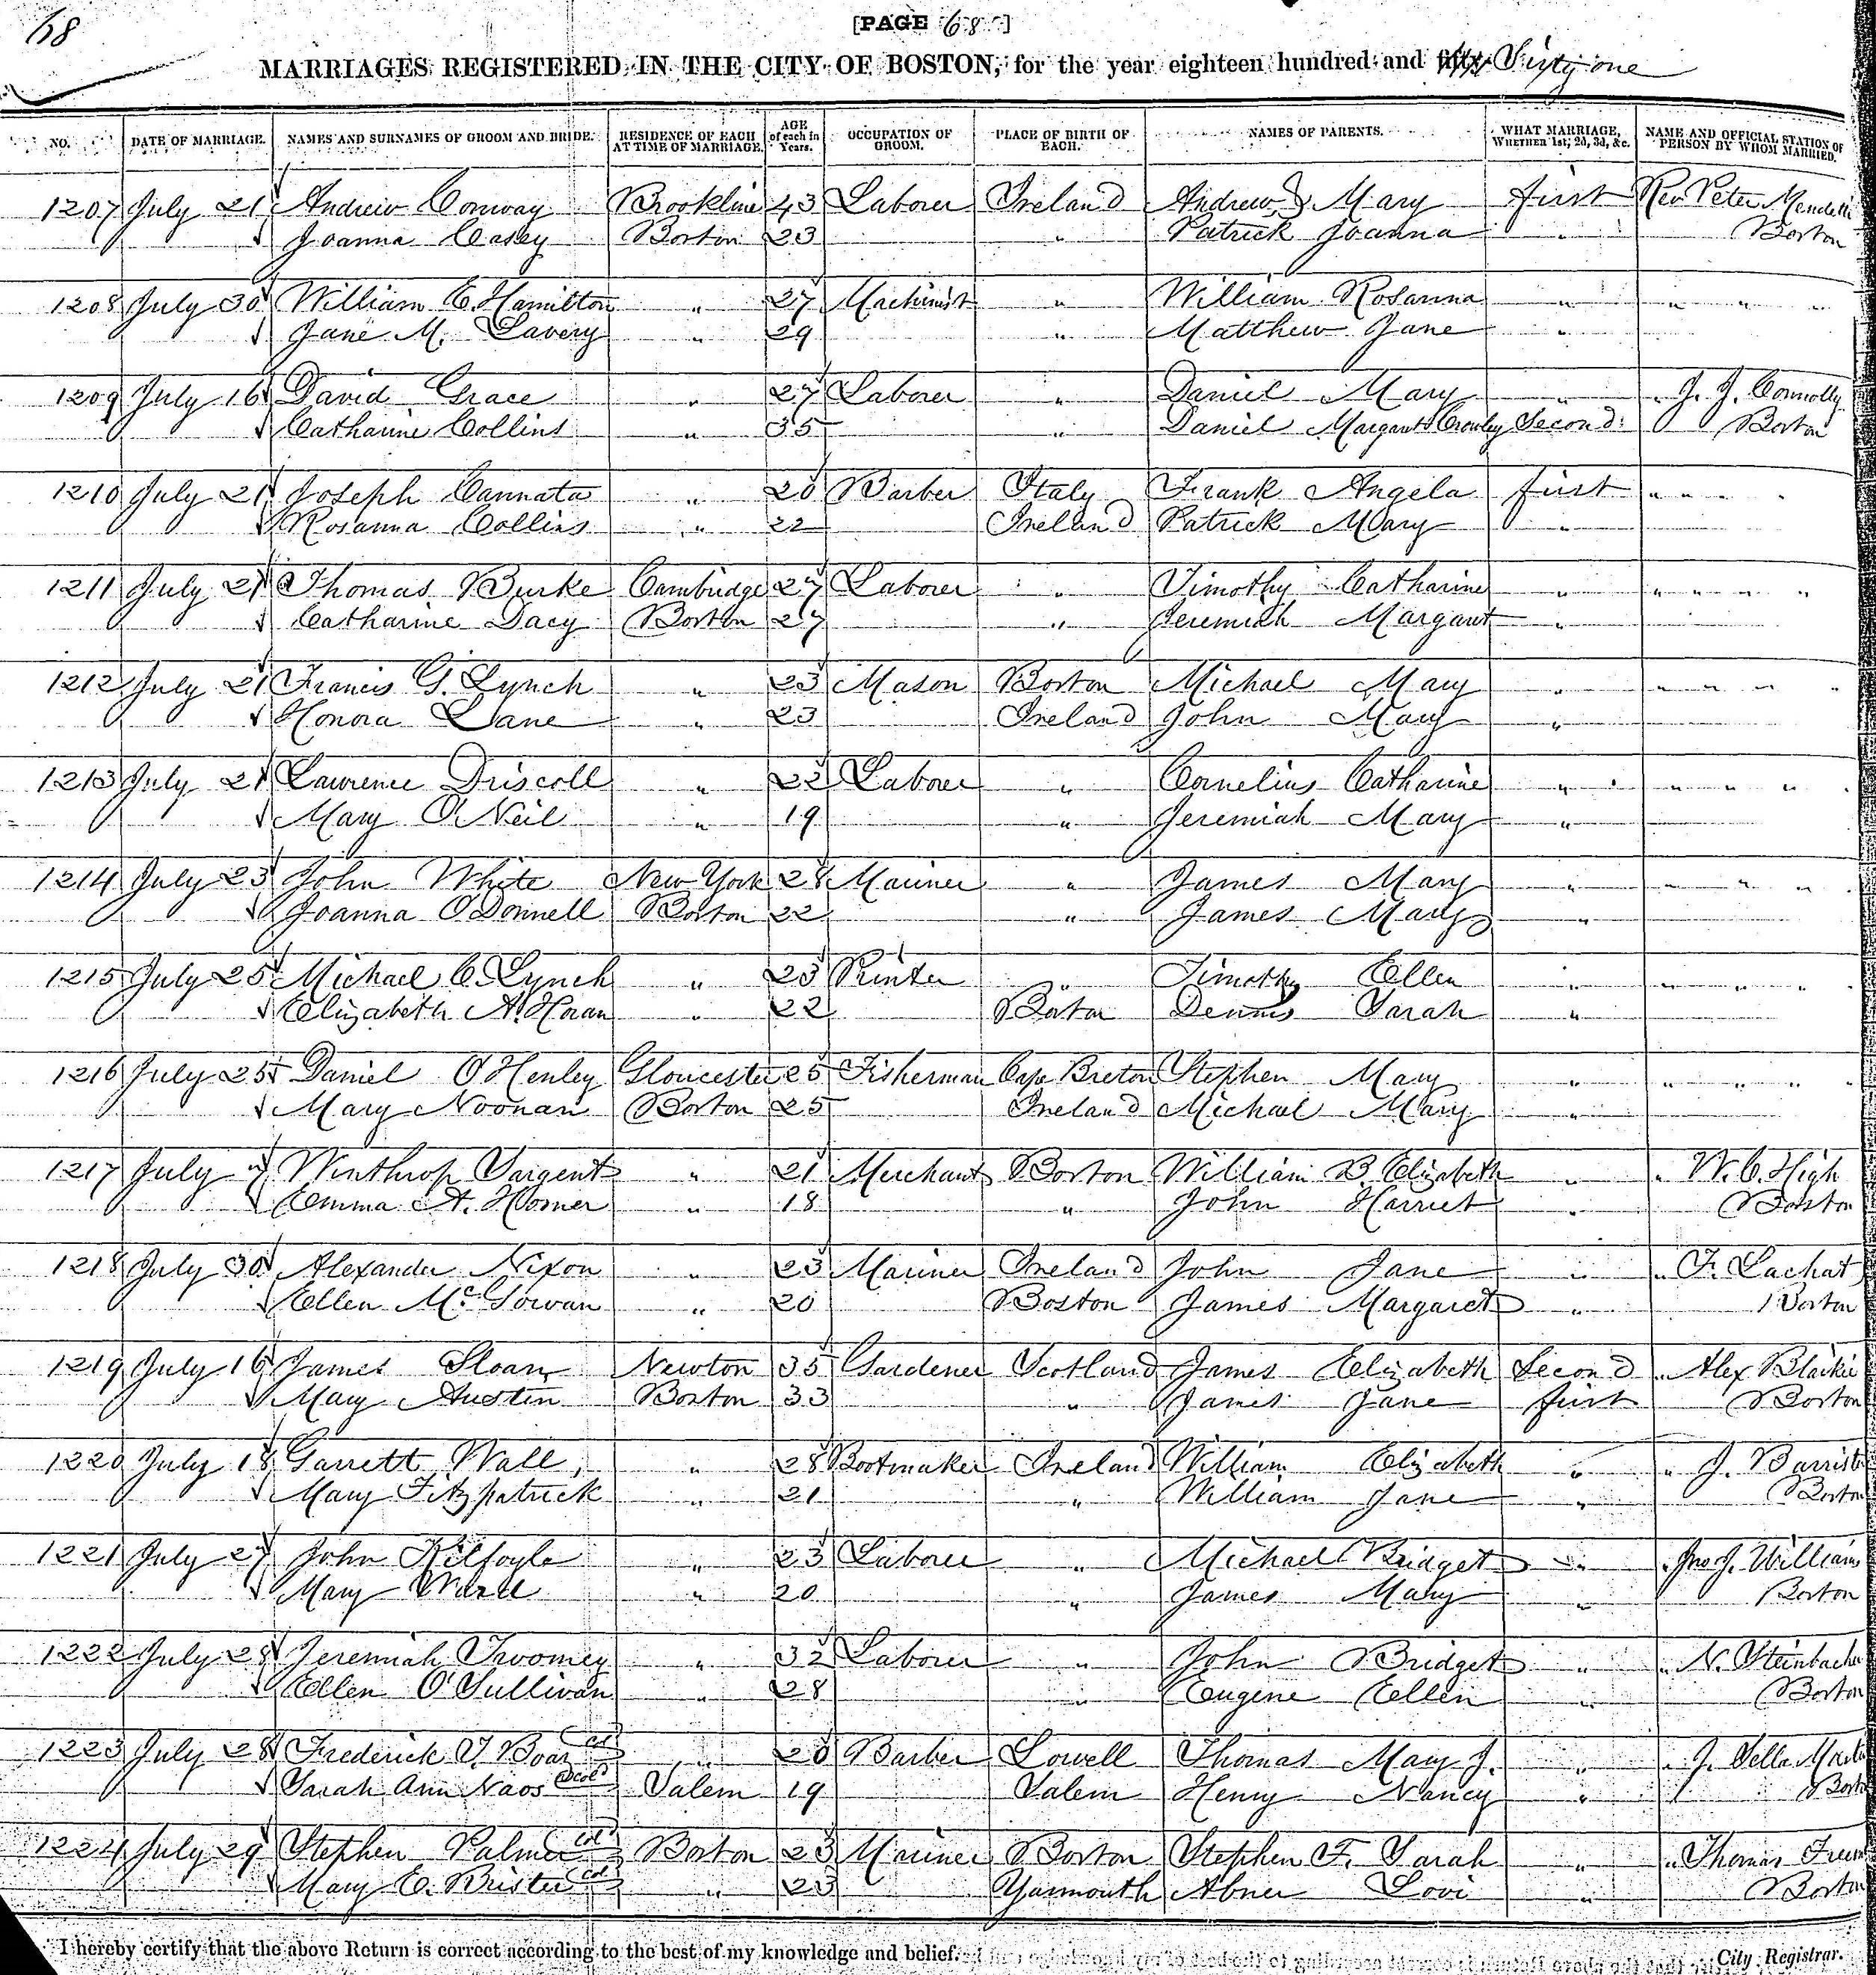 68
[PAGE 68]
MARRIAGES REGISTERED IN THE CITY OF BOSTON, for the year eighteen hundred and fifty Sixty one
NO. DATE OF MARRIAGE. NAMES AND SURNAMES OF GROOM AND BRIDE. RESIDENCE OF EACH AT TIME OF MARRIAGE. AGE of each in Years. OCCUPATION OF GROOM. PLACE OF BIRTH OF EACH. NAMES OF PARENTS. WHAT MARRIAGE, WHETHER 1st, 2d, 3d, &c. NAME AND OFFICIAL STATION OF PERSON BY WHOM MARRIED.
1207 July 21 Andrew Conway Brookline 43 Laborer Ireland Andrew & Mary first Rev Peter
Joanna Casey Boston 23 " Patrick Joanna " Boston
1208 July 30 William C. Hamilton " 27 Machinist " William Rosanna " " " "
Jane M. Lavery " 29 " Matthew Jane "
1209 July 16 David Grace " 27 Laborer " Daniel Mary " " J. J. Connolly
Catharine Collins " 35 " Daniel Margaret Crowley Second Boston
1210 July 21 Joseph Cannata " 20 Barber Italy Frank Angela first " " " "
Rosanna Collins " 22 Ireland Patrick Mary "
1211 July 21 Thomas Burke Cambridge 27 Laborer " Timothy Catharine " " " " "
Catharine Dacy Boston 27 " Jeremiah Margaret "
1212 July 21 Francis G. Lynch " 23 Mason Boston Michael Mary " " " " "
Honora Lane " 23 Ireland John Mary "
1213 July 21 Lawrence Driscoll " 22 Laborer " Cornelius Catharine " " " " "
Mary O'Neil " 19 " Jeremiah Mary "
1214 July 23 John White New York 28 Mariner " James Mary " " " " "
Joanna O'Donnell Boston 22 " James Mary "
1215 July 25 Michael C. Lynch " 23 Printer " Timothy Ellen " " " " "
Elizabeth A. Horan " 22 Boston Dennis Sarah "
1216 July 25 Daniel O'Henley Gloucester 25 Fisherman Cape Breton Stephen Mary " " " " "
Mary Noonan Boston 25 Ireland Michael Mary "
1217 July 7 Winthrop Sargent " 21 Merchant Boston William B. Elizabeth " " W. C. High
Emma A. Homer " 18 " John Harriet " Boston
1218 July 30 Alexander Nixon " 23 Mariner Ireland John Jane " " F. Lachat
Ellen McGowan " 20 Boston James Margaret " Boston
1219 July 16 James Sloan Newton 35 Gardener Scotland James Elizabeth Second " Alex Blaikie
Mary Austin Boston 33 " James Jane first Boston
1220 July 18 Garrett Wall " 28 Bootmaker Ireland William Elizabeth " " J.
Mary Fitzpatrick " 21 " William Jane " Boston
1221 July 27 John Kilfoyle " 23 Laborer " Michael Bridget " " Jno J. Williams
Mary Ward " 20 " James Mary " Boston
1222 July 28 Jeremiah Twomey " 32 Laborer " John Bridget " " N. Steinbacher
Ellen O'Sullivan " 28 " Eugene Ellen " Boston
1223 July 28 Frederick T. Boar (col) " 20 Barber Lowell Thomas Mary J. " " J. Sella
Sarah Ann Naos (col) Salem 19 Salem Henry Nancy " Boston
1224 July 29 Stephen Palmer (col) Boston 23 Mariner Boston Stephen F. Sarah " " Thomas
Mary E. Brister (col) " 23 Yarmouth Abner Lovi " Boston
I hereby certify that the above Return is correct according to the best of my knowledge and belief. City Registrar.